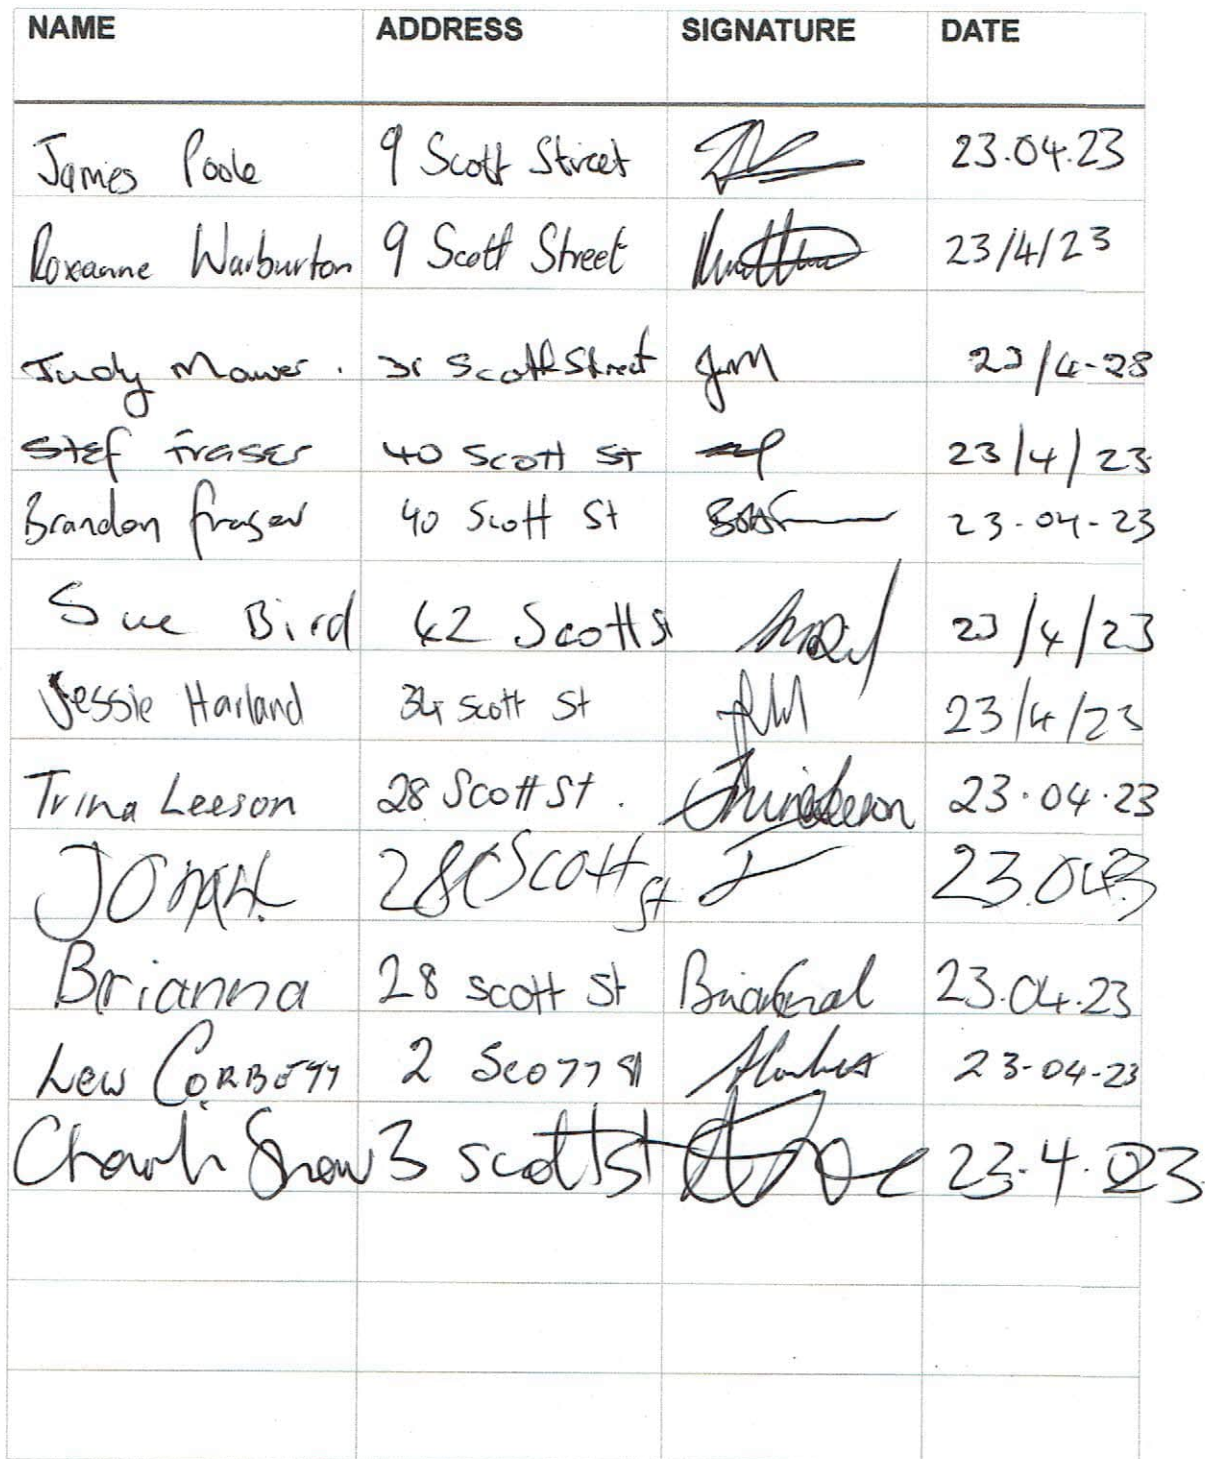 NAME ADDRESS SIGNATURE DATE
James Poole 9 Scott Street 23.04.23
Roxeanne Warburton 9 Scott Street 23/4/23
Judy Mower. Scott Street JM 23/4-23
Stef Fraser 40 Scott St 23/4/23
Brandon fraser 40 Scott St 23-04-23
Sue Bird 42 Scott St 23/4/23
Jessie Harland 34 Scott St 23/4/23
Trina Leeson 28 Scott St. Trina Leeson 23.04.23
JONAH. 28 Scott St J 23.04.23
Brianna 28 scott St 23.04.23
Lew CORBETT 2 SCOTT St 23-04-23
Snow 3 scott st 23.4.23